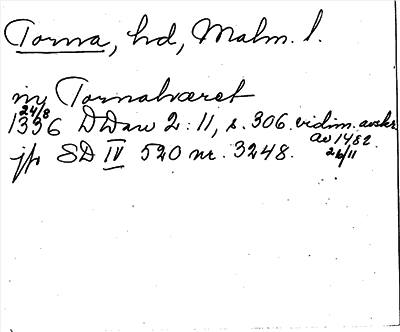 Torna, hd, Malm. l.
my Tornahæret
24/8
1336 DDan 2:11, s. 306. vidim. avskr.
av 1482
jfr SD IV 520 nr. 3248. 26/11